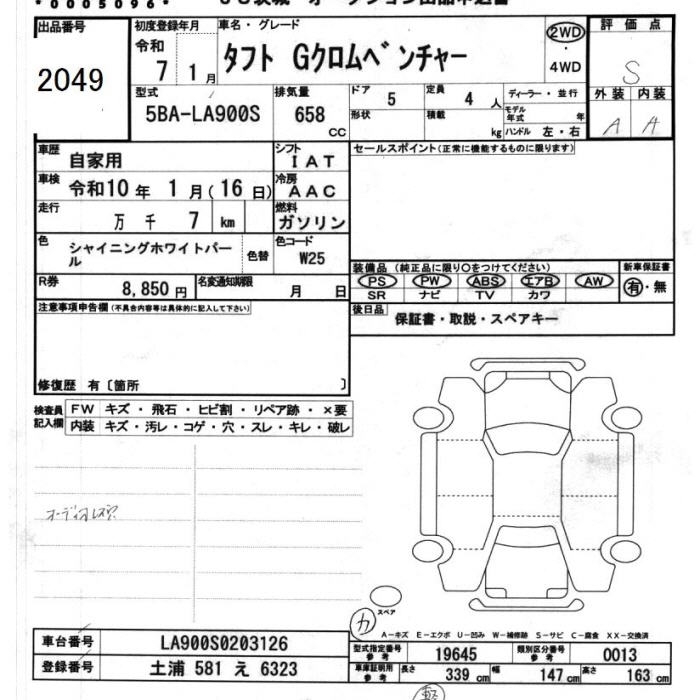 *0005096*
出品番号
2049
初度登録年月
令和
7 1月
車名・グレード
タフト Gクロムベンチャー
2WD
・
4WD
評価点
S
外装 内装
A A
型式
5BA-LA900S
排気量
658
CC
ドア 5
形状
定員 4 人
積載 kg
ディーラー・並行
モデル年式 年
ハンドル 左・右
車歴
自家用
シフト
IAT
車検
令和10年 1月(16日)
冷房
AAC
走行
万 千 7 km
燃料
ガソリン
色
シャイニングホワイトパール
色替
色コード
W25
R券
8,850円
名変通知期限
月 日
セールスポイント(正常に機能するものに限ります)
装備品(純正品に限り○をつけてください)
PS PW ABS エアB AW
SR ナビ TV カワ
新車保証書
有・無
後日品
保証書・取説・スペアキー
注意事項申告欄(不具合内容等は具体的に記入して下さい)
修復歴 有〔箇所 〕
検査員記入欄
FW キズ・飛石・ヒビ割・リペア跡・×要
内装 キズ・汚レ・コゲ・穴・スレ・キレ・破レ
オーディオレス
スペア
カ
A-キズ E-エクボ U-凹み W-補修跡 S-サビ C-腐食 XX-交換済
車台番号
LA900S0203126
登録番号
土浦 581 え 6323
型式指定番号
参考
19645
類別区分番号
参考
0013
車庫証明用
参考
長さ 339 cm 幅 147 cm 高さ 163 cm
軽